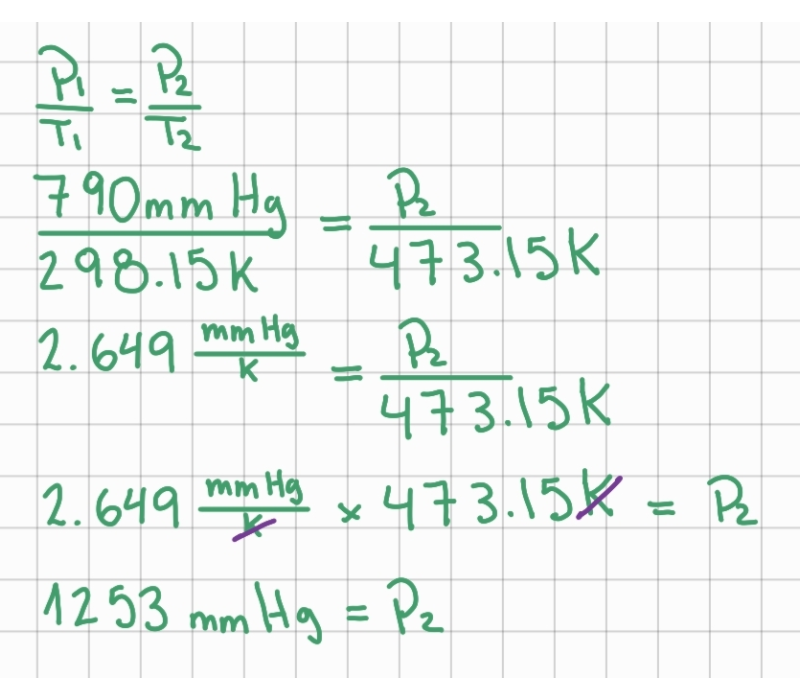 P₁/T₁ = P₂/T₂
790mm Hg/298.15K = P₂/473.15K
2.649 mmHg/K = P₂/473.15K
2.649 mmHg/K × 473.15K = P₂
1253 mmHg = P₂